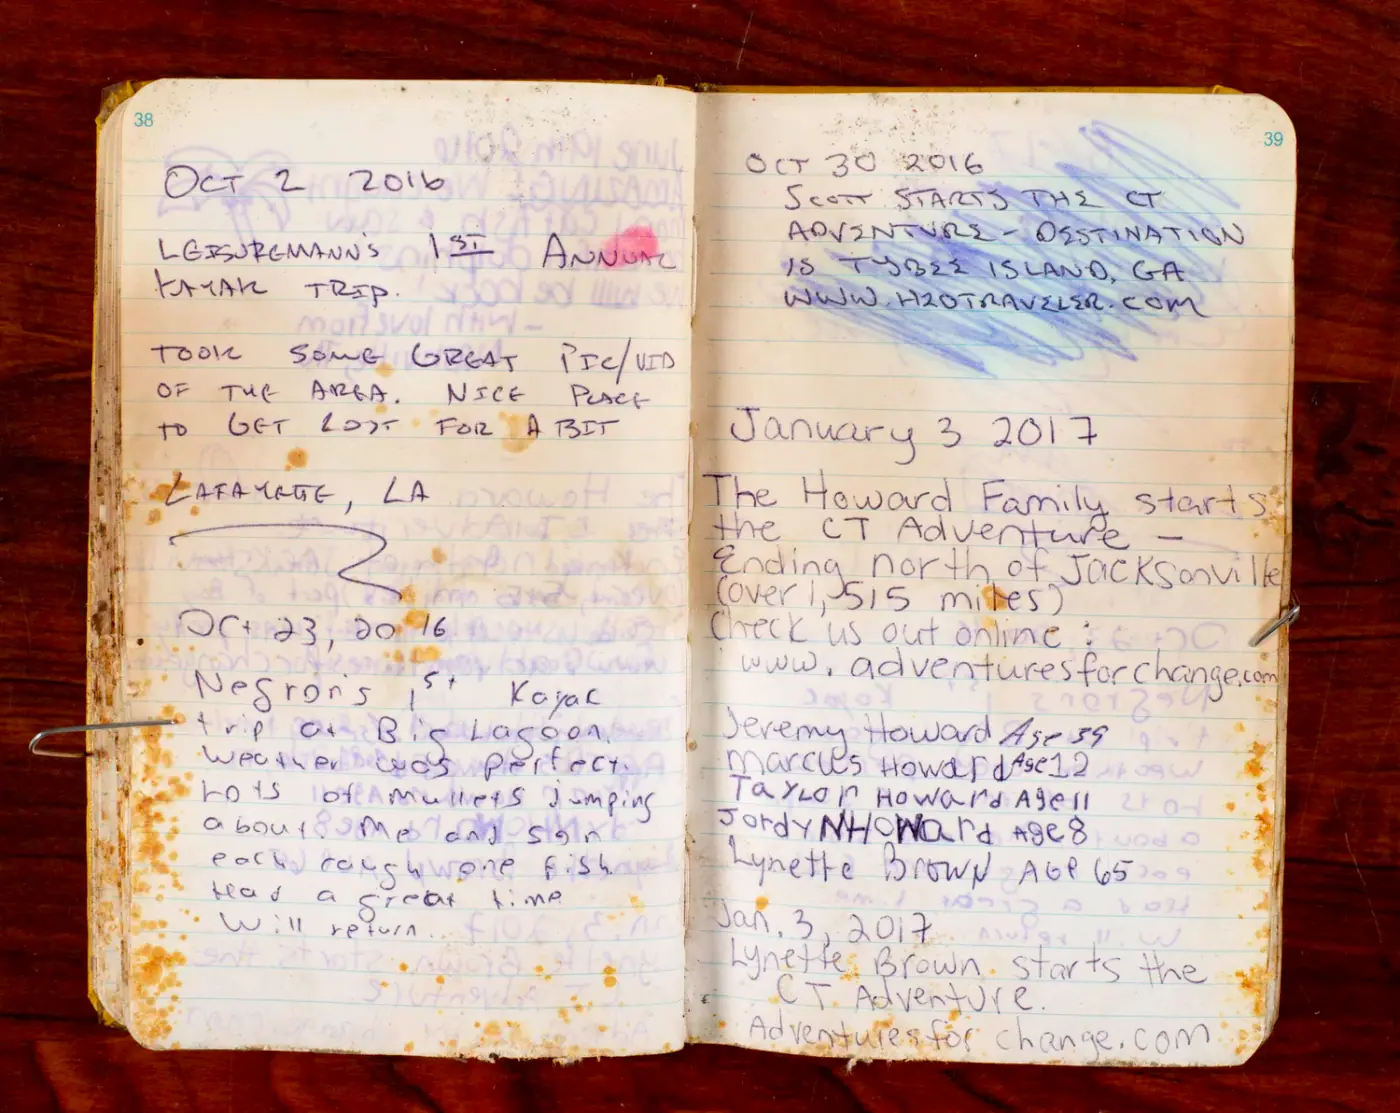 38
OCT 2 2016
LEISUREMANN'S 1ST ANNUAL
KAYAK TRIP.
TOOK SOME GREAT PIC/VID
OF THE AREA. NICE PLACE
TO GET LOST FOR A BIT
LAFAYETTE, LA
Oct 23, 2016
Negron's 1st Kayak
trip at Big Lagoon.
Weather was perfect.
Lots of mullets Jumping
about. Me and
each caught one fish.
Had a great time
Will return.
39
OCT 30 2016
SCOTT STARTS THE CT
ADVENTURE - DESTINATION
IS TYBEE ISLAND, GA
WWW.H2OTRAVELER.COM
January 3 2017
The Howard Family starts
the CT Adventure -
Ending north of Jacksonville
(over 1,515 miles)
Check us out online:
www.adventuresforchange.com
Jeremy Howard Age 39
Marcus Howard Age 12
Taylor Howard Age 11
JordyN HOWard Age 8
Lynette Brown Age 65
Jan. 3, 2017
Lynette Brown starts the
CT Adventure.
Adventuresforchange.com